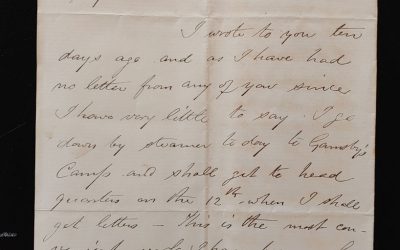 I wrote to you ten
days ago and as I have had
no letter from any of you since
I have very little to say. I go
down by steamer to day to Gamsby's
Camp and shall get to head
quarters on the 12th when I shall
get letters – This is the most con-